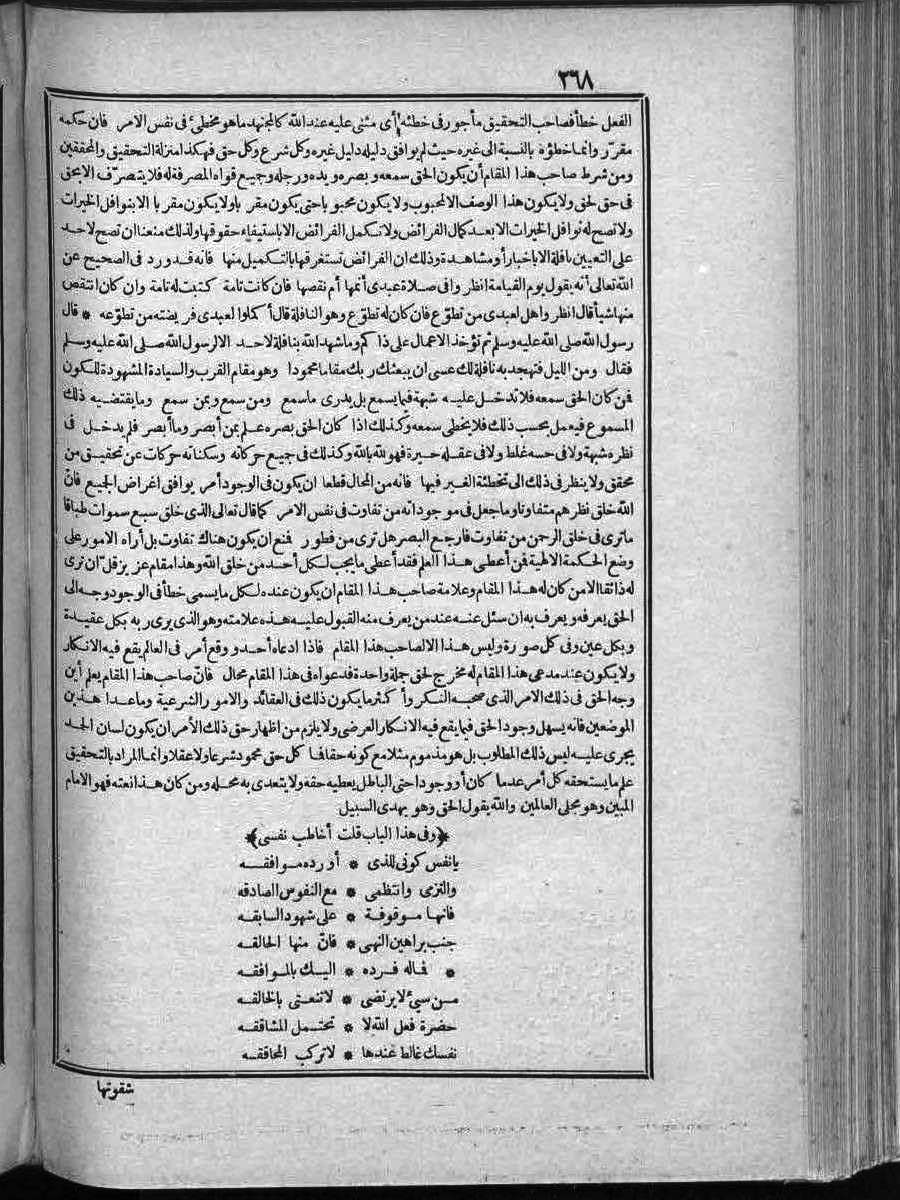 ٢٦٨
الفعل خطأ فصاحب التحقيق مأجور في خطئه أي مثنى عليه عند الله كالمجتهد ما هو مخطئ في نفس الامر فان حكمه
مقرّر وانما خطؤه بالنسبة الى غيره حيث لم يوافق دليله دليل غيره وكل شرع وكل حق فهكذا منزلة التحقيق والمحققين
ومن شرط صاحب هذا المقام أن يكون الحق سمعه وبصره ويده ورجله وجميع قواه المصرفة له فلا يتصرّف الا بحق
في حق لحق ولا يكون هذا الوصف الا لمحبوب ولا يكون محبوبا حتى يكون مقربا ولا يكون مقربا الا بنوافل الخيرات
ولا تصح له نوافل الخيرات الا بعد كمال الفرائض ولا تكمل الفرائض الا باستيفاء حقوقها ولذلك منعنا ان تصح لاحد
على التعيين نافلة الا باخبار أو مشاهدة وذلك ان الفرائض تستغرقها بالتكميل منها فانه قد ورد في الصحيح عن
الله تعالى أنه يقول يوم القيامة انظروا في صلاة عبدي أتمها أم نقصها فان كانت تامة كتبت له تامة وان كان انتقص
منها شيأ قال انظروا هل لعبدي من تطوّع فان كان له تطوّع وهو النافلة قال أكملوا لعبدي فريضته من تطوّعه * قال
رسول الله صلى الله عليه وسلم ثم تؤخذ الاعمال على ذاكم وما شهد الله بنافلة لاحد الا لرسول الله صلى الله عليه وسلم
فقال ومن الليل فتهجد به نافلة لك عسى ان يبعثك ربك مقاما محمودا وهو مقام القرب والسيادة المشهودة للكون
فمن كان الحق سمعه فلا تدخل عليه شبهة فيما يسمع بل يدرى ما سمع ومن سمع وبمن سمع وما يقتضيه ذلك
المسموع فيعمل بحسب ذلك فلا يخطئ سمعه وكذلك اذا كان الحق بصره علم بمن أبصر وما أبصر فلم يدخل في
نظره شبهة ولا في حسه غلط ولا في عقله حيرة فهو لله بالله وكذلك في جميع حركاته وسكناته حركات عن تحقيق من
محقق ولا ينظر في ذلك الى تخطئة الغير فيها فانه من المحال قطعا ان يكون في الوجود أمر يوافق اغراض الجميع فانّ
الله خلق نظرهم متفاوتا وما جعل في موجوداته من تفاوت في نفس الامر كما قال تعالى الذي خلق سبع سموات طباقا
ما ترى في خلق الرحمن من تفاوت فارجع البصر هل ترى من فطور فمنع ان يكون هناك تفاوت بل أراه الامور على
وضع الحكمة الالهية فمن أعطى هذا العلم فقد أعطى ما يجب لكل أحد من خلق الله وهذا مقام عزيز قلّ ان ترى
له ذائقا الا من كان له هذا المقام وعلامة صاحب هذا المقام ان يكون عنده لكل ما يسمى خطأ في الوجود وجه الى
الحق يعرفه ويعرف به ان سئل عنه عند من يعرف منه القبول عليه هذه علامته وهو الذي يرى ربه بكل عقيدة
وبكل عين وفي كل صورة وليس هذا الا لصاحب هذا المقام فاذا ادعاه أحد ووقع أمر في العالم يقع فيه الانكار
ولا يكون عند مدعى هذا المقام له مخرج لحق جملة واحدة فدعواه في هذا المقام محال فانّ صاحب هذا المقام يعلم أين
وجه الحق في ذلك الامر الذي صحبه النكر وأكثر ما يكون ذلك في العقائد والامور الشرعية وما عدا هذين
الموضعين فانه يسهل وجود الحق فيما يقع فيه الانكار العرضي ولا يلزم من اظهار حق ذلك الأمر ان يكون لسان الحمد
يجرى عليه ليس ذلك المطلوب بل هو مذموم مثلا مع كونه حقا فما كل حق محمود شرعا ولا عقلا وانما المراد بالتحقيق
علم ما يستحقه كل أمر عدما كان أو وجودا حتى الباطل يعطيه حقه ولا يتعدى به محله ومن كان هذا نعته فهو الامام
المبين وهو مجلى العالمين والله يقول الحق وهو يهدى السبيل
﴿وفي هذا الباب قلت أخاطب نفسي﴾
يا نفس كوني للذي * أورده موافقه
والتزمي وانتظمي * مع النفوس الصادقه
فانها موقوفة * على شهود السابقه
جنب براهين النهى * فانّ منها الحالقه
* فاله فرده * اليك بالموافقه
من سيئ لا يرتضى * لا تنعتى بالخالقه
حضرة فعل الله لا * تحتمل المشاققه
نفسك غالط عندها * لا تركب المحاققه
شقوتها